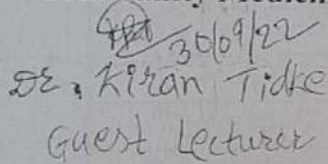 30/09/22
Dr. Kiran Tidke
Guest Lecturer